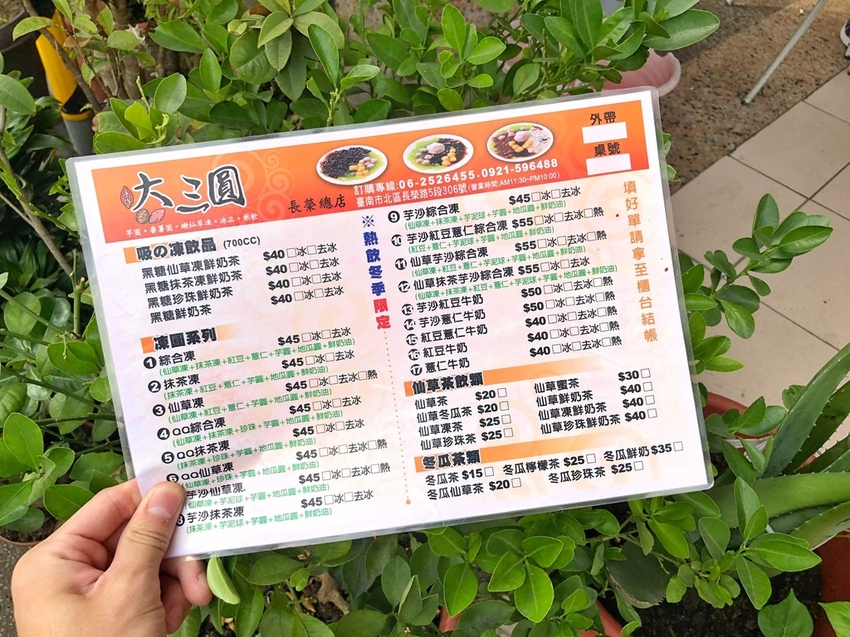 大三圓
長榮總店
芋圓·番薯圓·嫩仙草凍·冰品·熱飲
訂購專線:06-2526455.0921-596488
臺南市北區長榮路5段306號(營業時間:AM11:30~PM10:00)
外帶
桌號
填好單請拿至櫃台結帳
※熱飲冬季限定
吸の凍飲品 (700CC)
黑糖仙草凍鮮奶茶 $40□冰□去冰
黑糖抹茶凍鮮奶茶 $40□冰□去冰
黑糖珍珠鮮奶茶 $40□冰□去冰
黑糖鮮奶茶 $40□冰□去冰
凍圓系列
1 綜合凍 $45□冰□去冰
(仙草凍+抹茶凍+紅豆+薏仁+芋圓+地瓜圓+鮮奶油)
2 抹茶凍 $45□冰□去冰
(抹茶凍+紅豆+薏仁+芋圓+地瓜圓+鮮奶油)
3 仙草凍 $45□冰□去冰□熱
(仙草凍+紅豆+薏仁+芋圓+地瓜圓+鮮奶油)
4 QQ綜合凍 $45□冰□去冰
(仙草凍+抹茶凍+珍珠+芋圓+地瓜圓+鮮奶油)
5 QQ抹茶凍 $45□冰□去冰
(抹茶凍+珍珠+芋圓+地瓜圓+鮮奶油)
6 QQ仙草凍 $45□冰□去冰□熱
(仙草凍+珍珠+芋圓+地瓜圓+鮮奶油)
芋沙仙草凍 $45□冰□去冰□熱
(仙草凍+芋泥球+芋圓+地瓜圓+鮮奶油)
芋沙抹茶凍 $45□冰□去冰
(抹茶凍+芋泥球+芋圓+地瓜圓+鮮奶油)
9 芋沙綜合凍 $45□冰□去冰
(仙草凍+抹茶凍+芋泥球+芋圓+地瓜圓+鮮奶油)
10 芋沙紅豆薏仁綜合凍 $55□冰□去冰□熱
(紅豆+薏仁+芋泥球+芋圓+地瓜圓+鮮奶油)
11 仙草芋沙綜合凍 $55□冰□去冰□熱
(仙草凍+紅豆+薏仁+芋泥球+芋圓+地瓜圓+鮮奶油)
12 仙草抹茶芋沙綜合凍 $55□冰□去冰
(仙草凍+抹茶凍+紅豆+薏仁+芋泥球+芋圓+地瓜圓+鮮奶油)
13 芋沙紅豆牛奶 $50□冰□去冰□熱
14 芋沙薏仁牛奶 $50□冰□去冰□熱
15 紅豆薏仁牛奶 $40□冰□去冰□熱
16 紅豆牛奶 $40□冰□去冰□熱
17 薏仁牛奶 $40□冰□去冰□熱
仙草茶飲類
仙草茶 $20□ 仙草蜜茶 $30□
仙草冬瓜茶 $20□ 仙草鮮奶茶 $40□
仙草凍茶 $25□ 仙草凍鮮奶茶 $40□
仙草珍珠茶 $25□ 仙草珍珠鮮奶茶 $40□
冬瓜茶類
冬瓜茶 $15□ 冬瓜檸檬茶 $25□ 冬瓜鮮奶 $35□
冬瓜仙草茶 $20□ 冬瓜珍珠茶 $25□